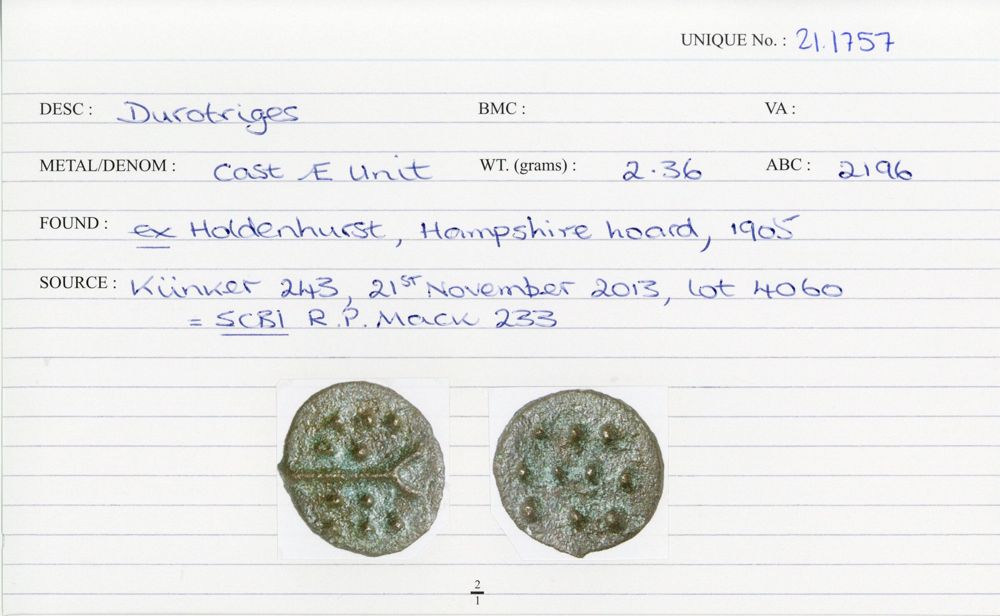 UNIQUE No. : 21.1757
DESC : Durotriges BMC : VA :
METAL/DENOM : Cast Æ Unit WT. (grams) : 2.36 ABC : 2196
FOUND : ex Holdenhurst, Hampshire hoard, 1905
SOURCE : Künker 243, 21ST November 2013, lot 4060
= SCBI R.P. Mack 233
2
1